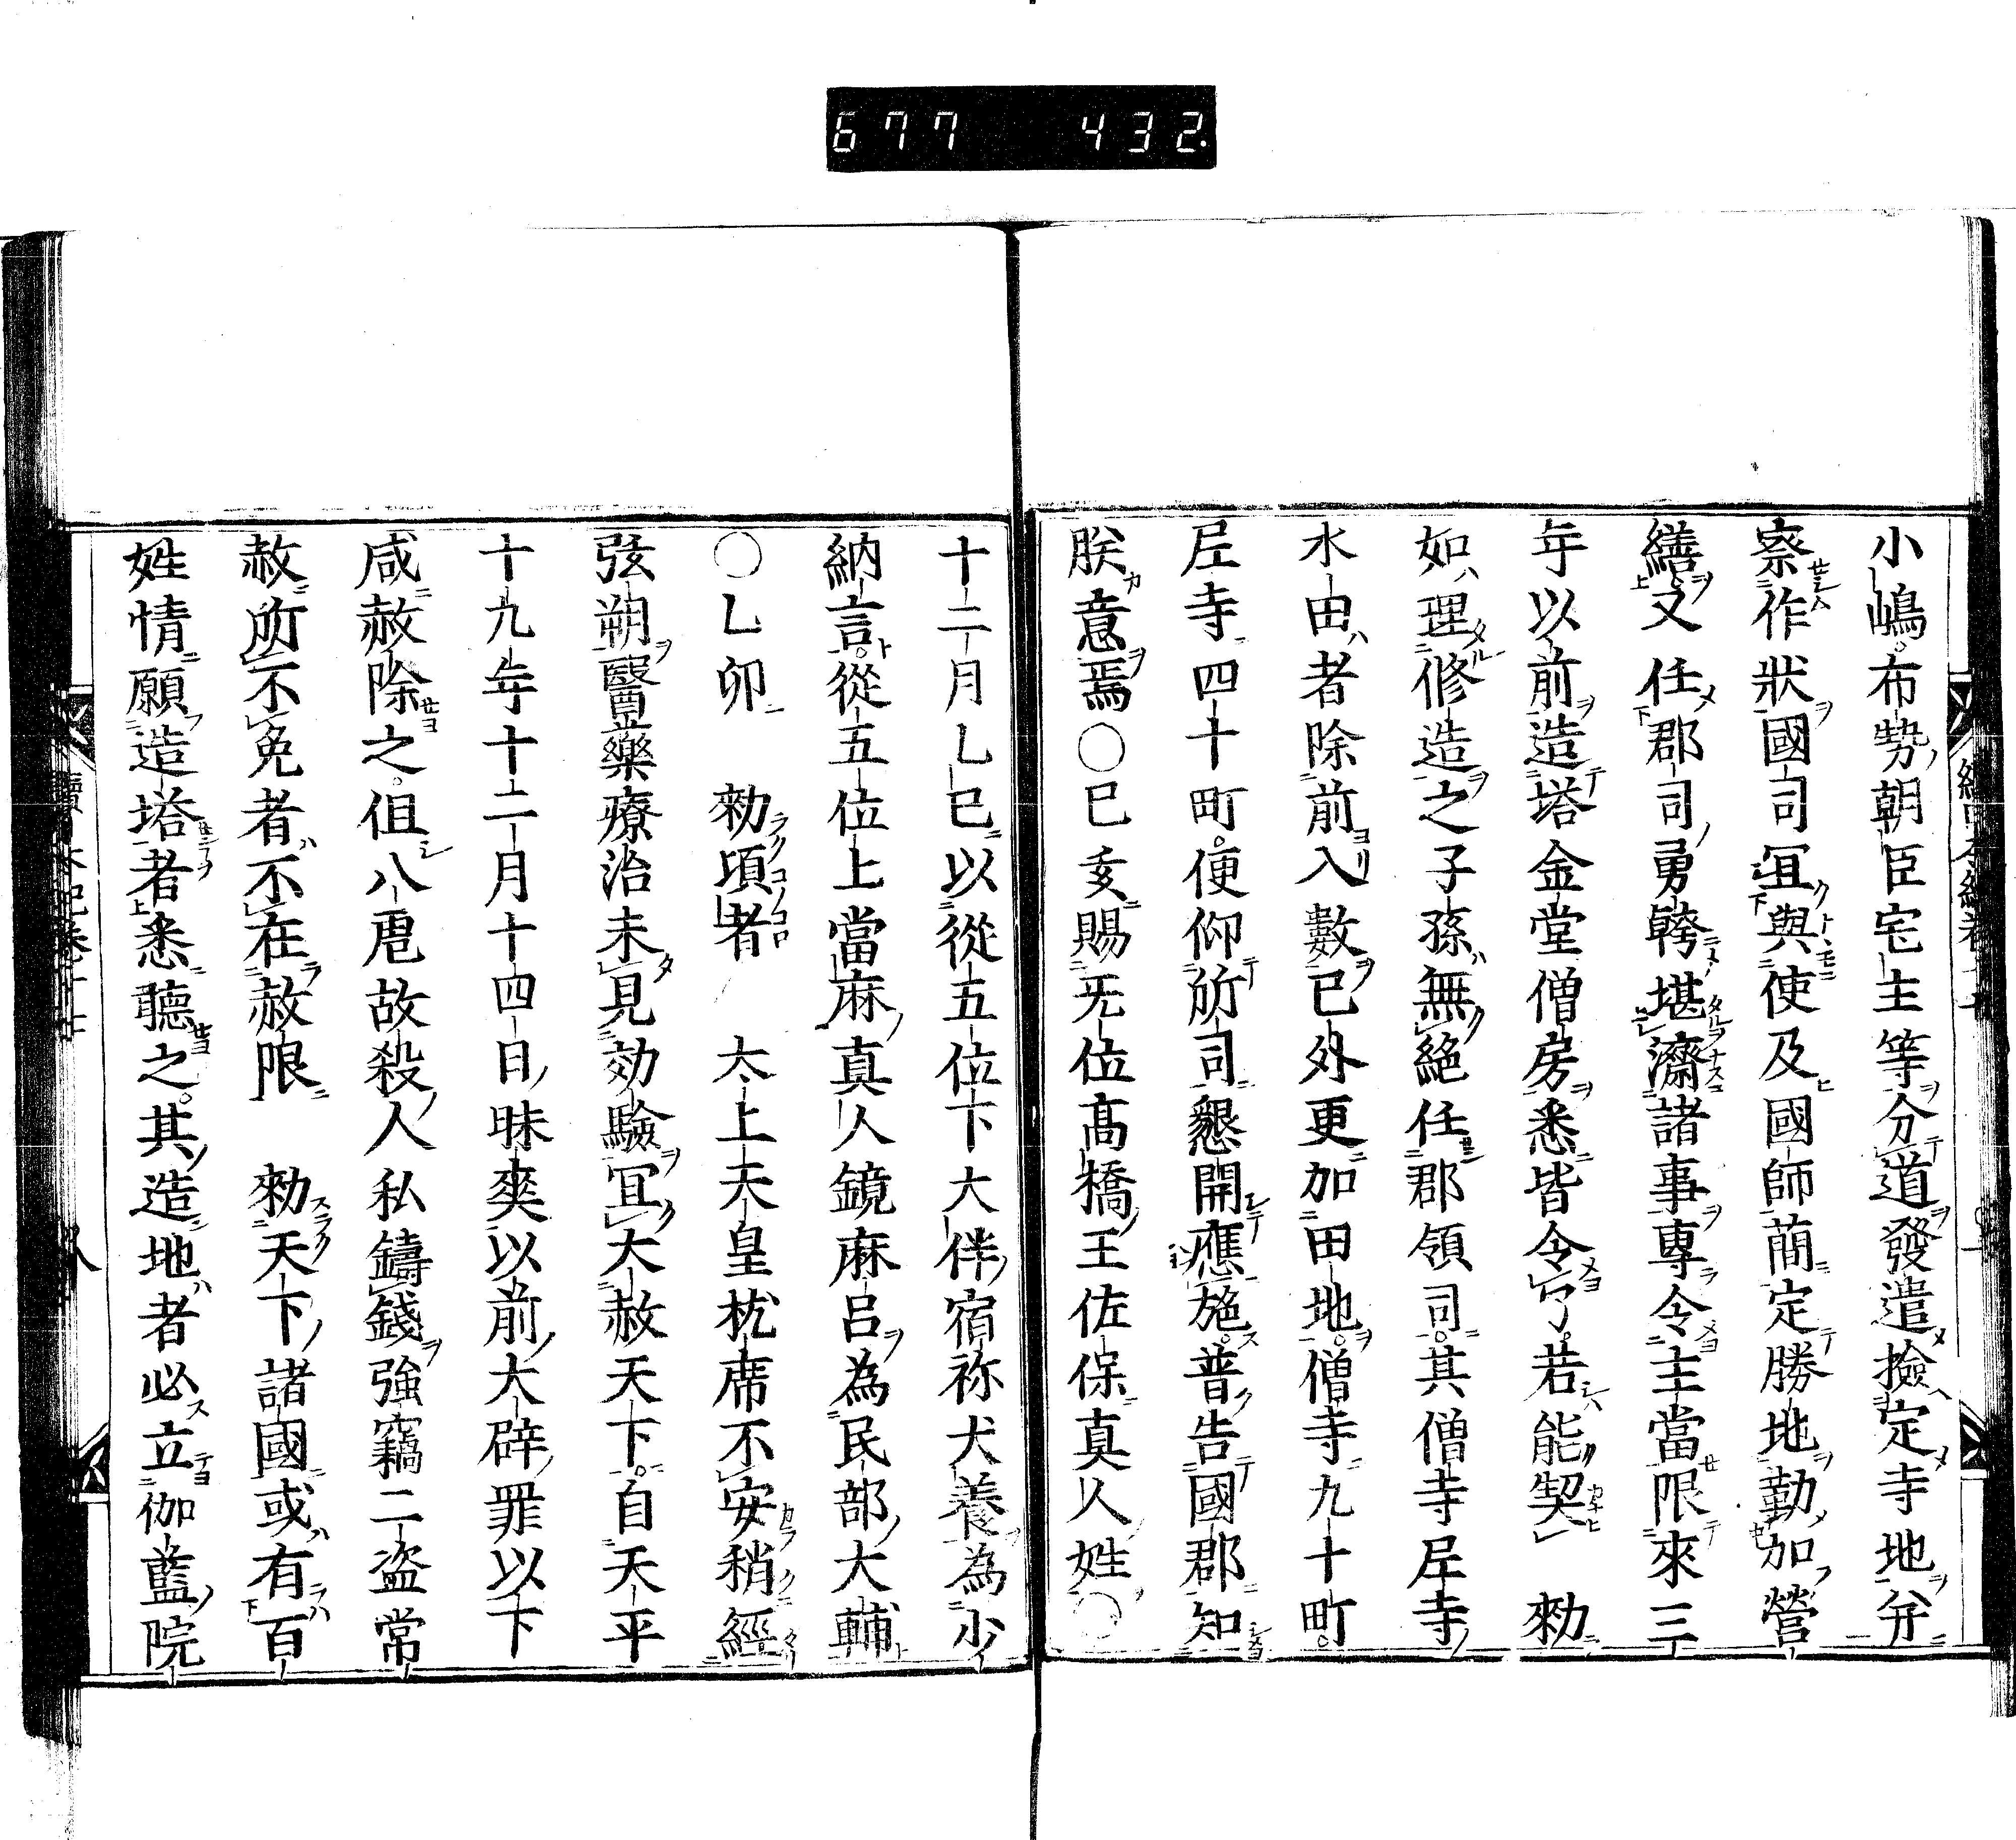 677 432.
小嶋布勢朝臣宅主等分道發遣撿定寺地并
察作狀國司冝與使及國師簡定勝地勤加營
繕又任郡司勇幹堪濟諸事專令主當限來三
年以前造塔金堂僧房悉皆令了若能契勑
如理修造之子孫無絕任郡領司其僧寺尼寺
水田者除前入數已外更加田地僧寺九十町
尼寺四十町便仰所司懇開應施普告國郡知
朕意焉○巳亥賜无位髙橋王佐保真人姓○
十二月乙巳以從五位下大伴宿祢犬養為少
納言從五位上當麻真人鏡麻呂為民部大輔
○乙卯勑頃者太上天皇枕席不安稍經
弦朔醫藥療治未見効驗冝大赦天下自天平
十九年十二月十四日昧爽以前大辟罪以下
咸赦除之但八虐故殺人私鑄錢強竊二盗常
赦所不免者不在赦限勑天下諸國或有百
姓情願造塔者悉聽之其造地者必立伽藍院
八